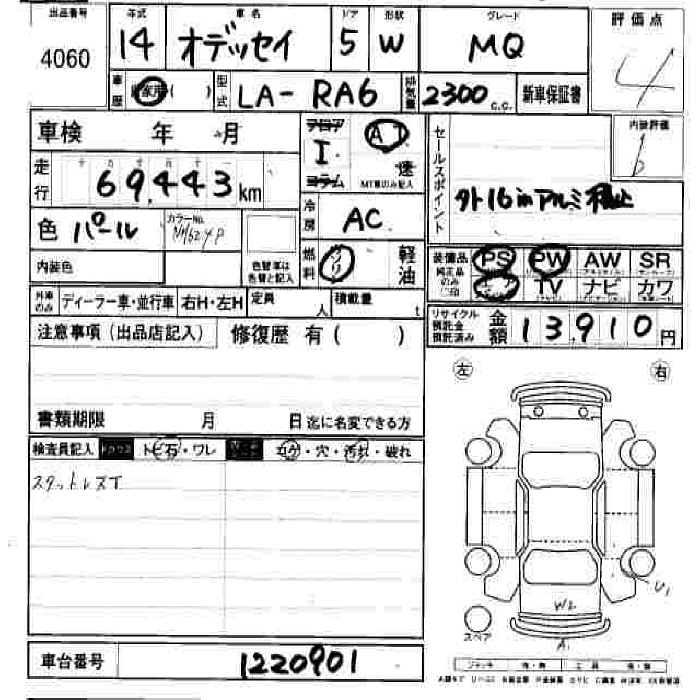 出品番号 年式 車名 ドア 形状 グレード 評価点
4060 14 オデッセイ 5 W MQ 4
車歴 自家用 ( ) 型式 LA-RA6 排気量 2300 c.c. 新車保証書
車検 年 月 フロア AT セールスポイント 内装評価
I 速
コラム MT車のみ記入
走行 69,443 km 外16inアルミ
冷房 AC
色 パール カラーNo. NH624P
色替車は色替と記入 燃料 ガソリン 軽油
内装色
装備品 純正品のみ○印 PS PW AW SR
エアB TV ナビ カワ
外車のみ ディーラー車・並行車 右H・左H 定員 人 積載量 t
リサイクル預託金預託済み 金額 13,910円
注意事項(出品店記入) 修復歴 有( )
左 右
書類期限 月 日 迄に名変できる方
検査員記入 ガラス トビ石・ワレ シート コゲ・穴・汚れ・破れ
スタットレスT
U1
W2
A1
スペア
車台番号 1220901